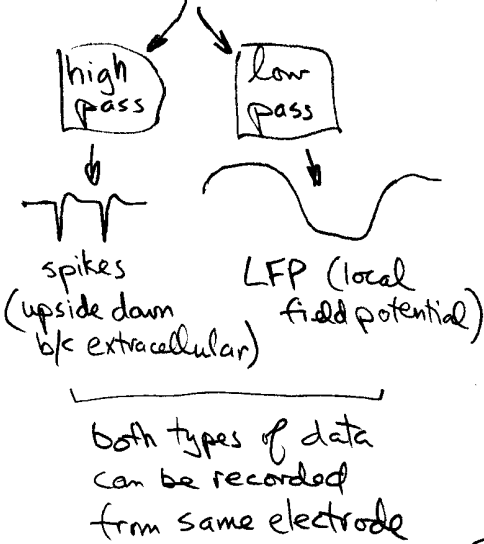 high
pass
low
pass
spikes
(upside down
b/c extracellular)
LFP (local
field potential)
both types of data
can be recorded
from same electrode